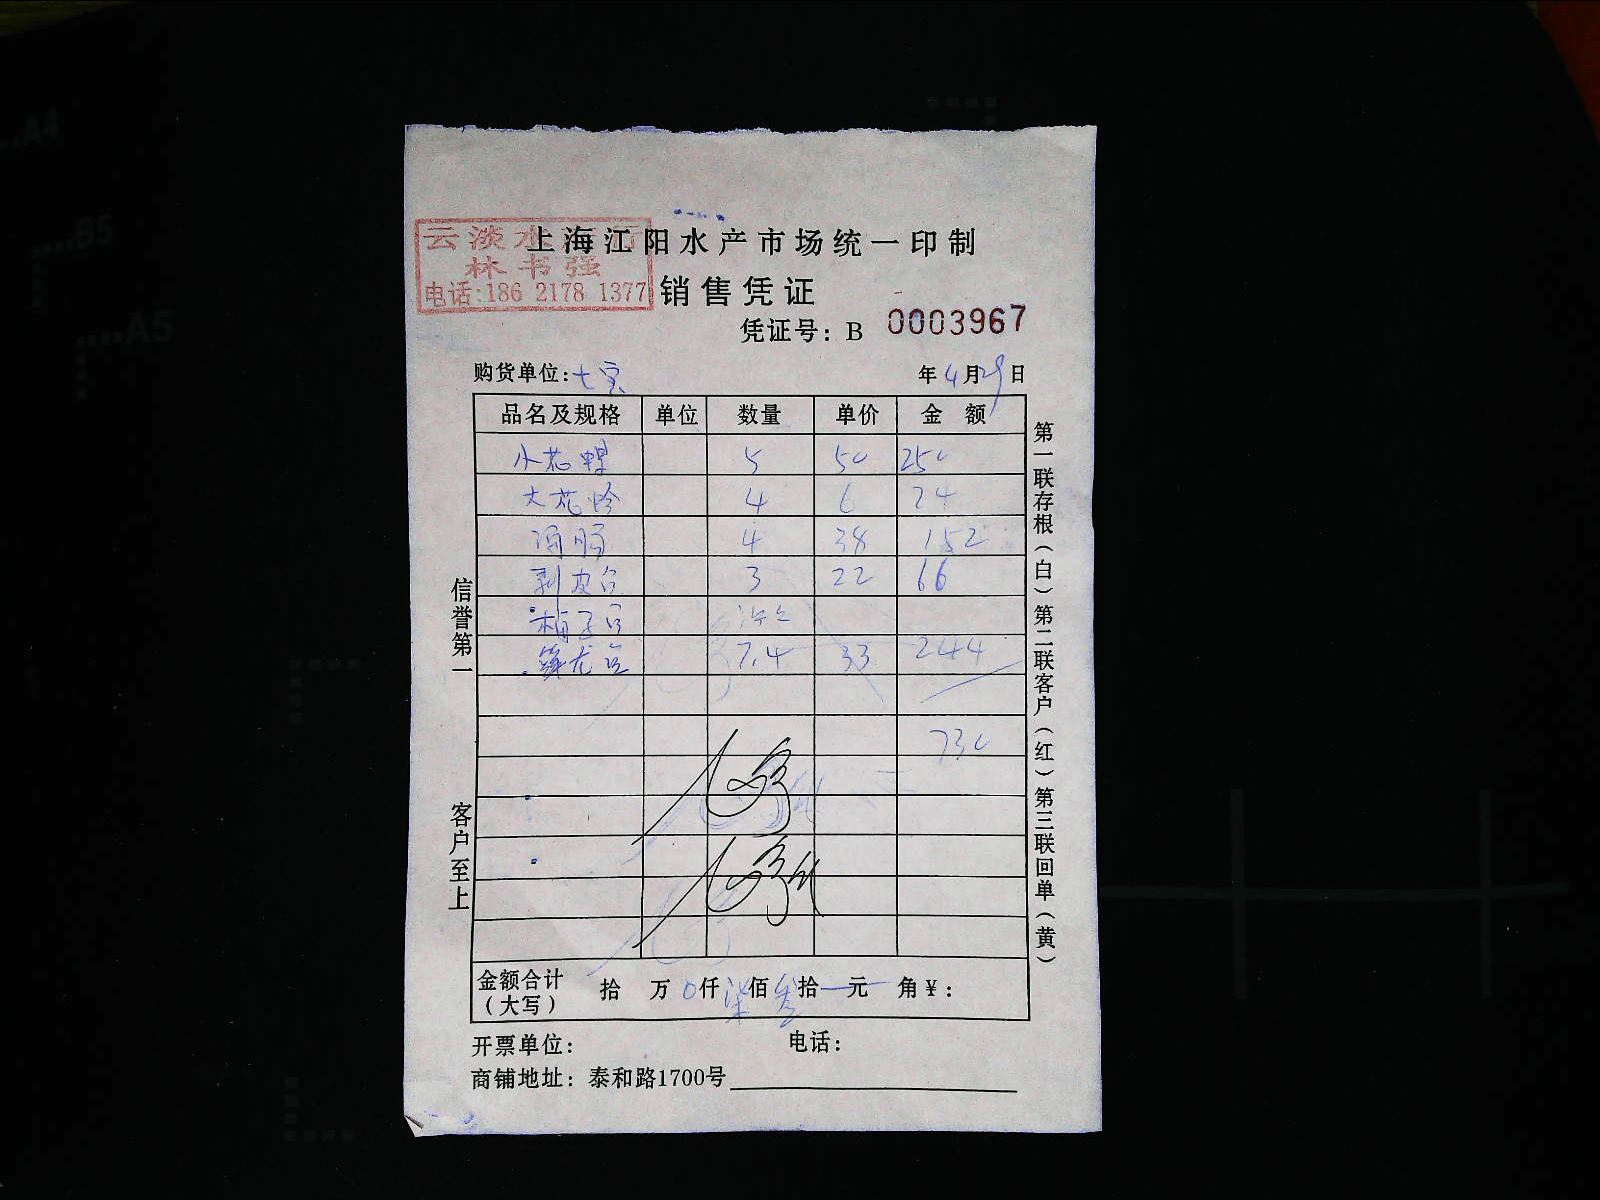 云淡水
上海江阳水产市场统一印制
林书强
电话:186 2178 1377
销售凭证
凭证号: B 0003967
购货单位: 七宝
年 4 月 29 日
品名及规格 单位 数量 单价 金额
小花 5 50 250
大花 4 6 24
4 38 152
剥皮 3 22 66
龙 7.4 33 244
730
金额合计(大写) 拾 万 0 仟 柒 佰 叁 拾 元 角 ¥:
开票单位: 电话:
商铺地址: 泰和路1700号
信誉第一
客户至上
第一联存根(白)第二联客户(红)第三联回单(黄)
A4
B5
A5